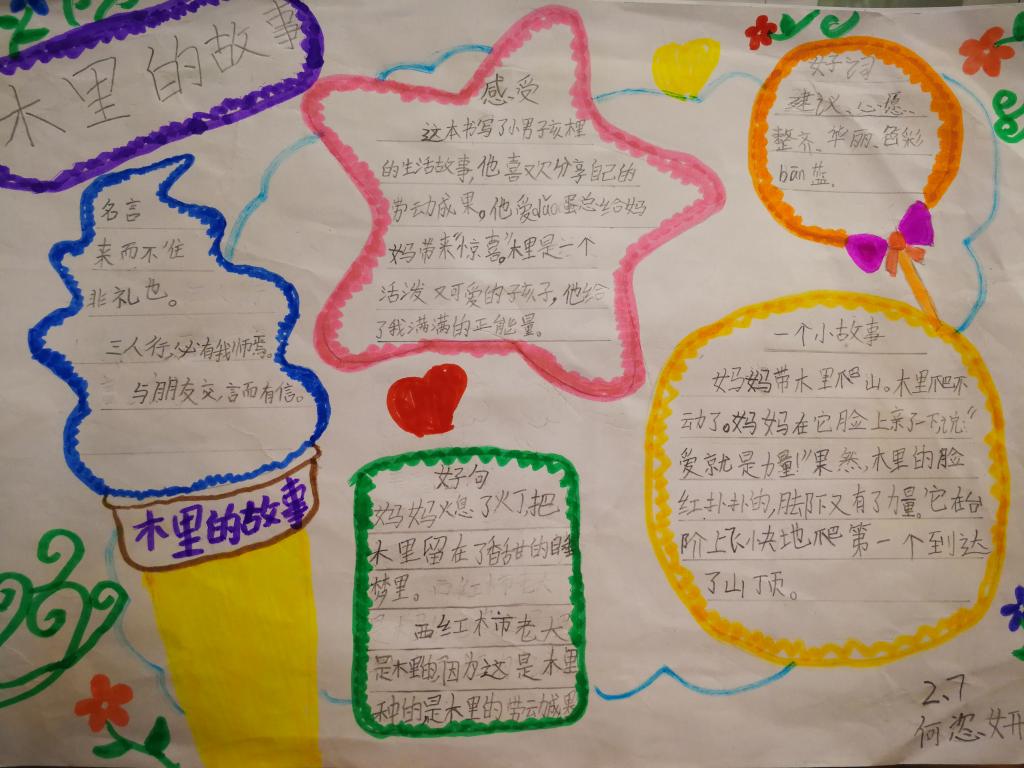 木里的故事
名言
来而不住
非礼也。
三人行,必有我师焉。
与朋友交,言而有信。
木里的故事
感受
这本书写了小男孩木里
的生活故事,他喜欢分享自己的
劳动成果。他爱dǎo蛋总给妈
妈带来"惊喜"。木里是一个
活泼又可爱的孩子,他给
了我满满的正能量。
好句
妈妈熄了火丁把
木里留在了香甜的自
梦里。
西红柿市老大
是木里的因为这是木里
种的是木里的劳动成果
好词
建议、心愿、
整齐、华丽、色彩
bān蓝。
一个小故事
妈妈带木里爬山。木里爬不
动了。妈妈在它脸上亲了一下说:"
爱就是力量!"果然,木里的脸
红扑扑的,脚下又有了力量。它在台
阶上飞快地爬第一个到达
了山丁页。
2.7
何恣妍